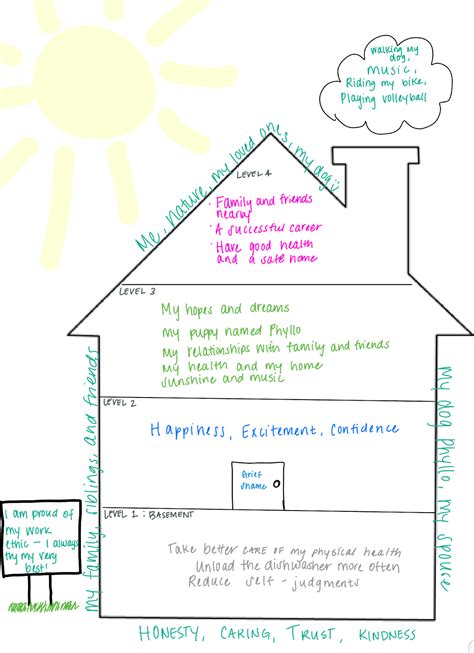 walking my
dog,
music,
Riding my bike,
Playing volleyball
Me, nature, my loved ones, my dog :)
LEVEL 4
· Family and friends
nearby
· A successful career
· Have good health
and a safe home
LEVEL 3
My hopes and dreams
my puppy named Phyllo
My relationships with family and friends
My health and my home
sunshine and music
my family, siblings, and friends
My dog Phyllo, my spouse
LEVEL 2
Happiness, Excitement, Confidence
Grief
shame
LEVEL 1 : BASEMENT
Take better CARE OF my physical health
Unload the dishwasher more often
Reduce self - judgments
I am proud of
my work
ethic – I always
try my very
best!
HONESTY, CARING, TRUST, KINDNESS